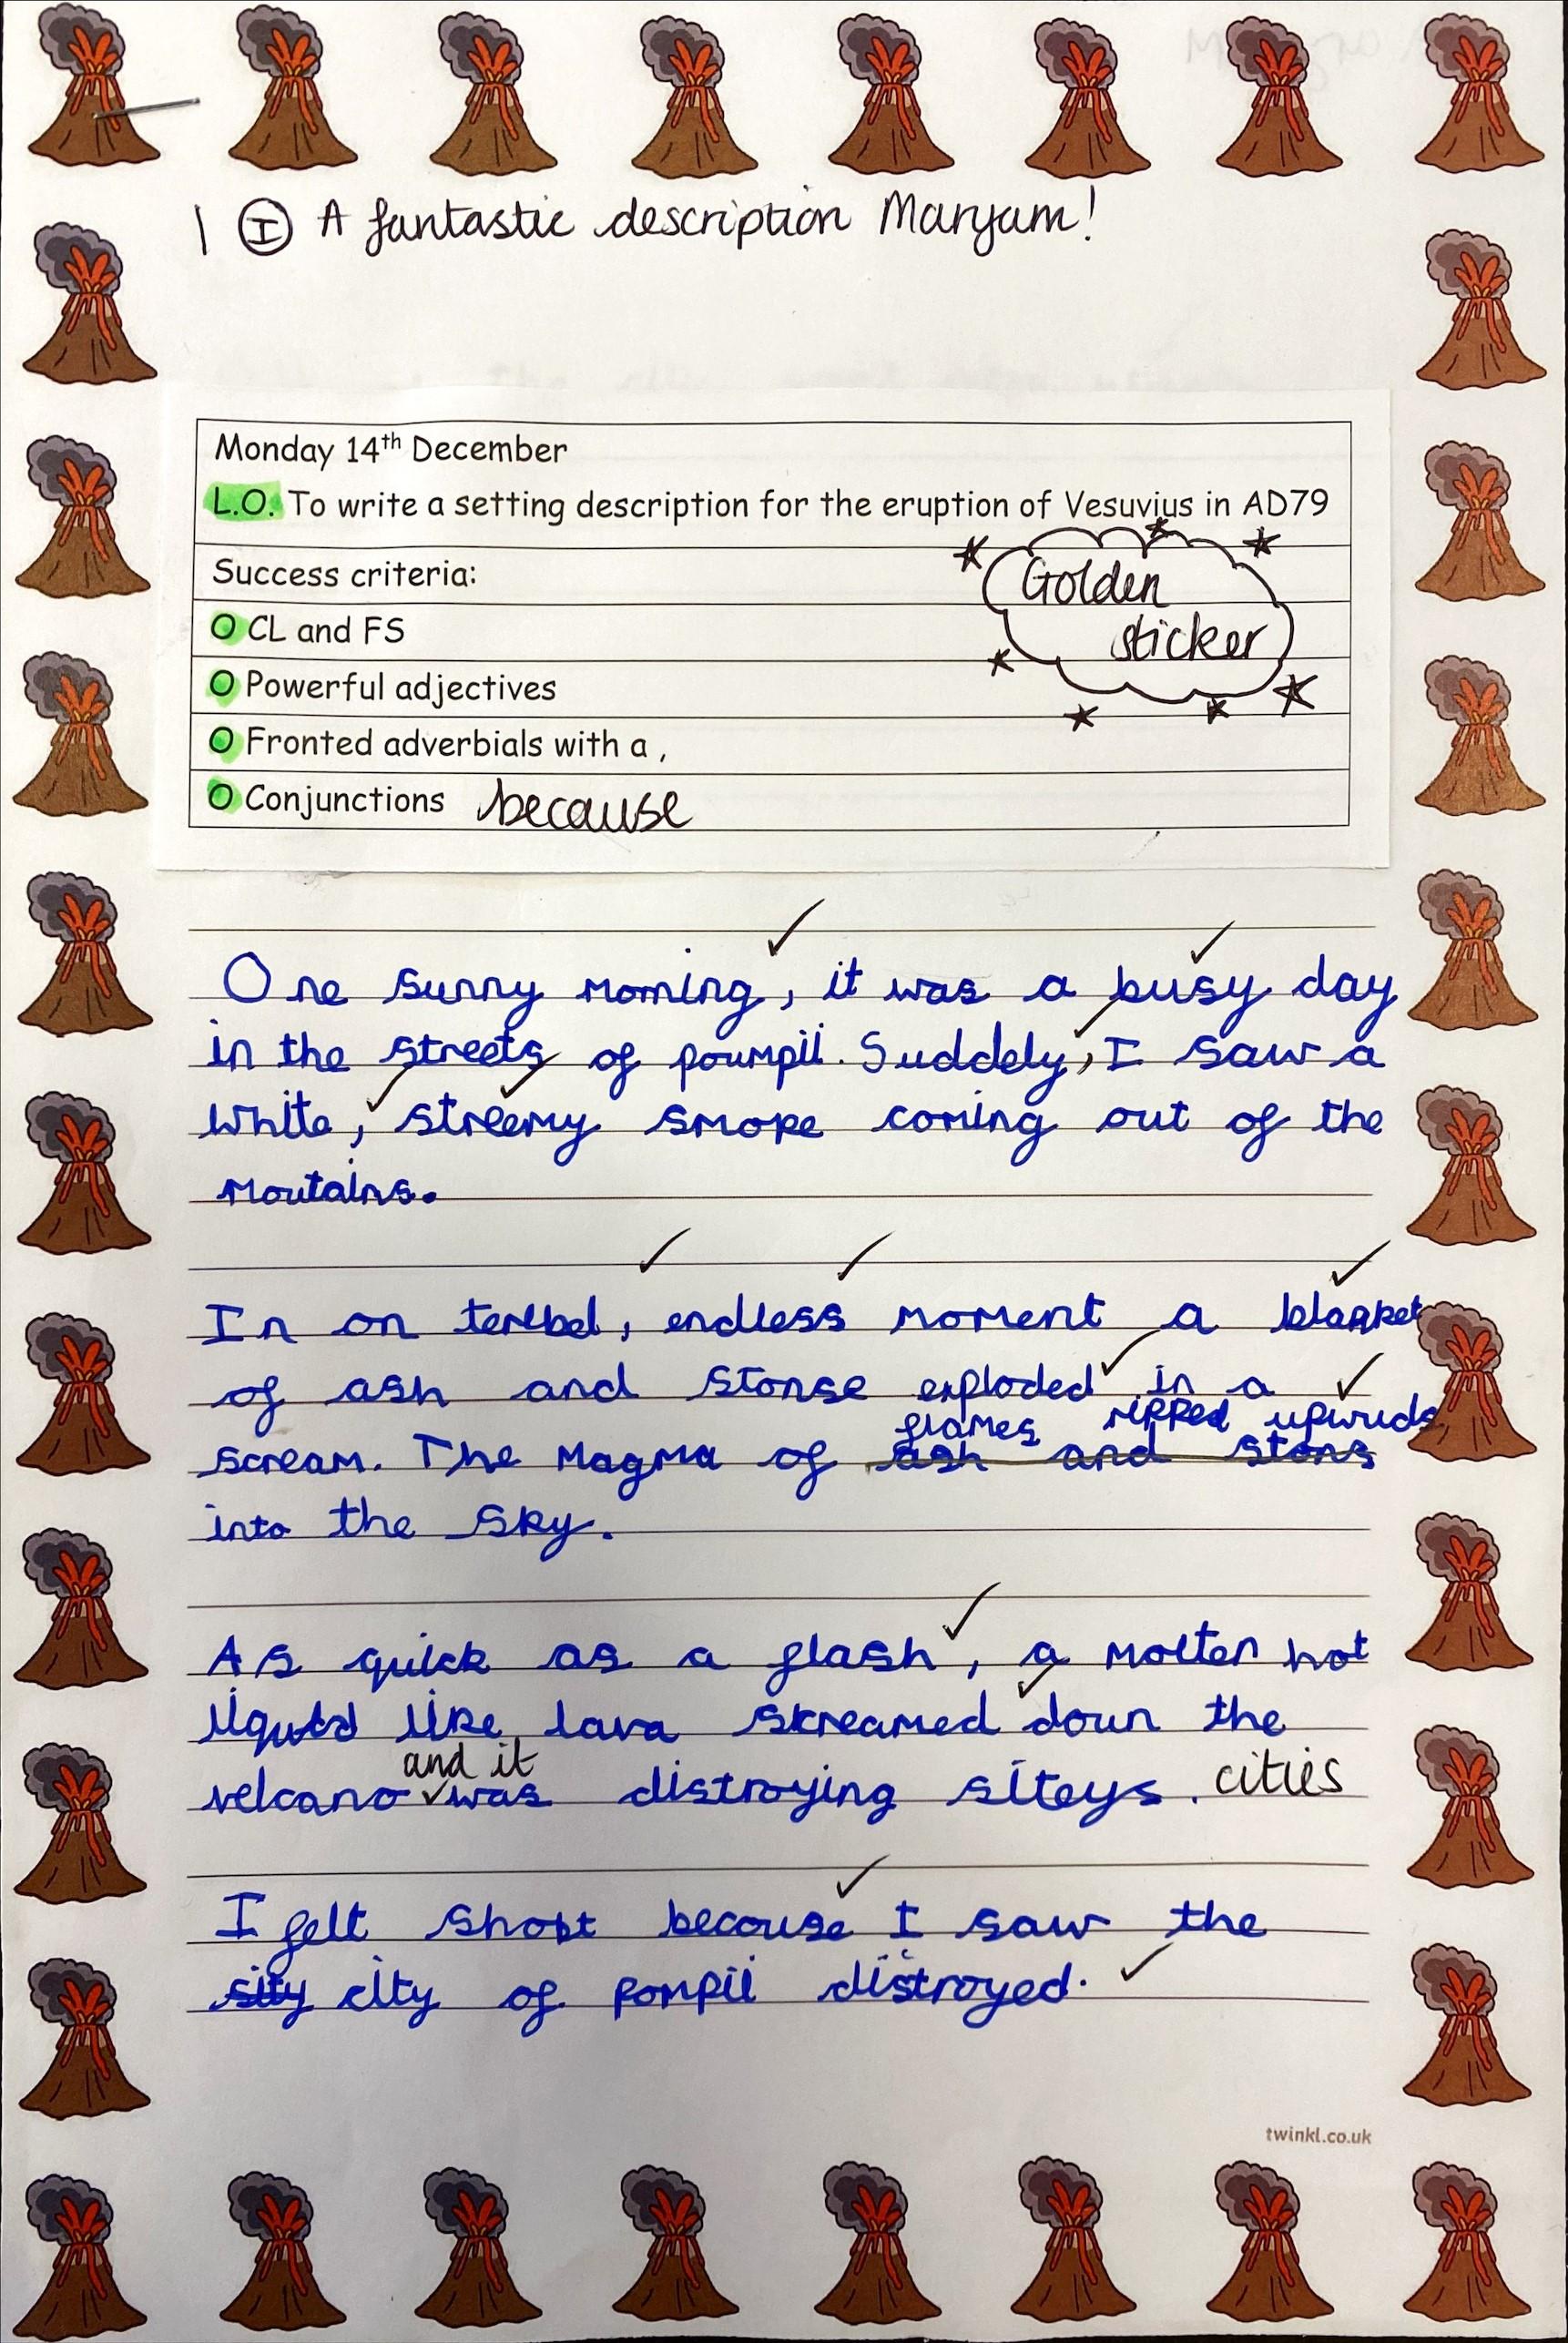 1 I A fantastic description Maryam!
Monday 14th December
L.O. To write a setting description for the eruption of Vesuvius in AD79
Success criteria:
O CL and FS
O Powerful adjectives
O Fronted adverbials with a ,
O Conjunctions because
Golden
sticker
One sunny morning, it was a busy day
in the streets of poumpii. Suddely, I saw a
white, streemy smoke coming out of the
moutains.
In on terebel, endless moment a blanket
of ash and stonse exploded in a
scream. The Magma of ash and stons
flames ripped upwruds
into the sky.
As quick as a flash, a molten hot
liquid like lava skreamed doun the
velcano and it was distroying siteys. cities
I felt shokt becouse I saw the
sity city of pompii distroyed.
twinkl.co.uk